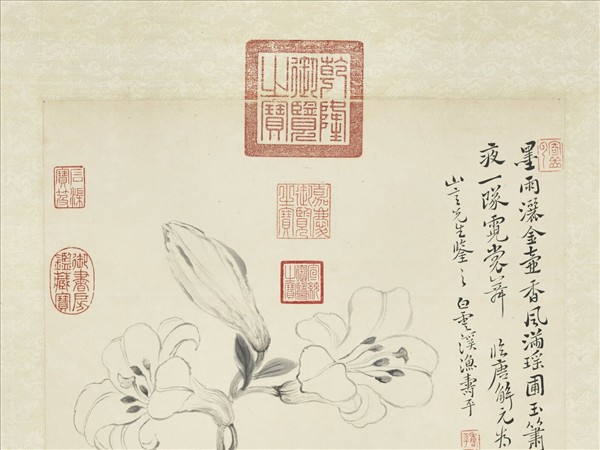 墨雨灑金壺香風滿瑤圃玉簫
夜一隊霓裳舞 臨唐解元为
山言先生鑒之 白雲溪漁壽平
乾隆御覽之寶
嘉慶御覽之寶
宣統御覽之寶
石渠寶笈
御書房鑑藏寶